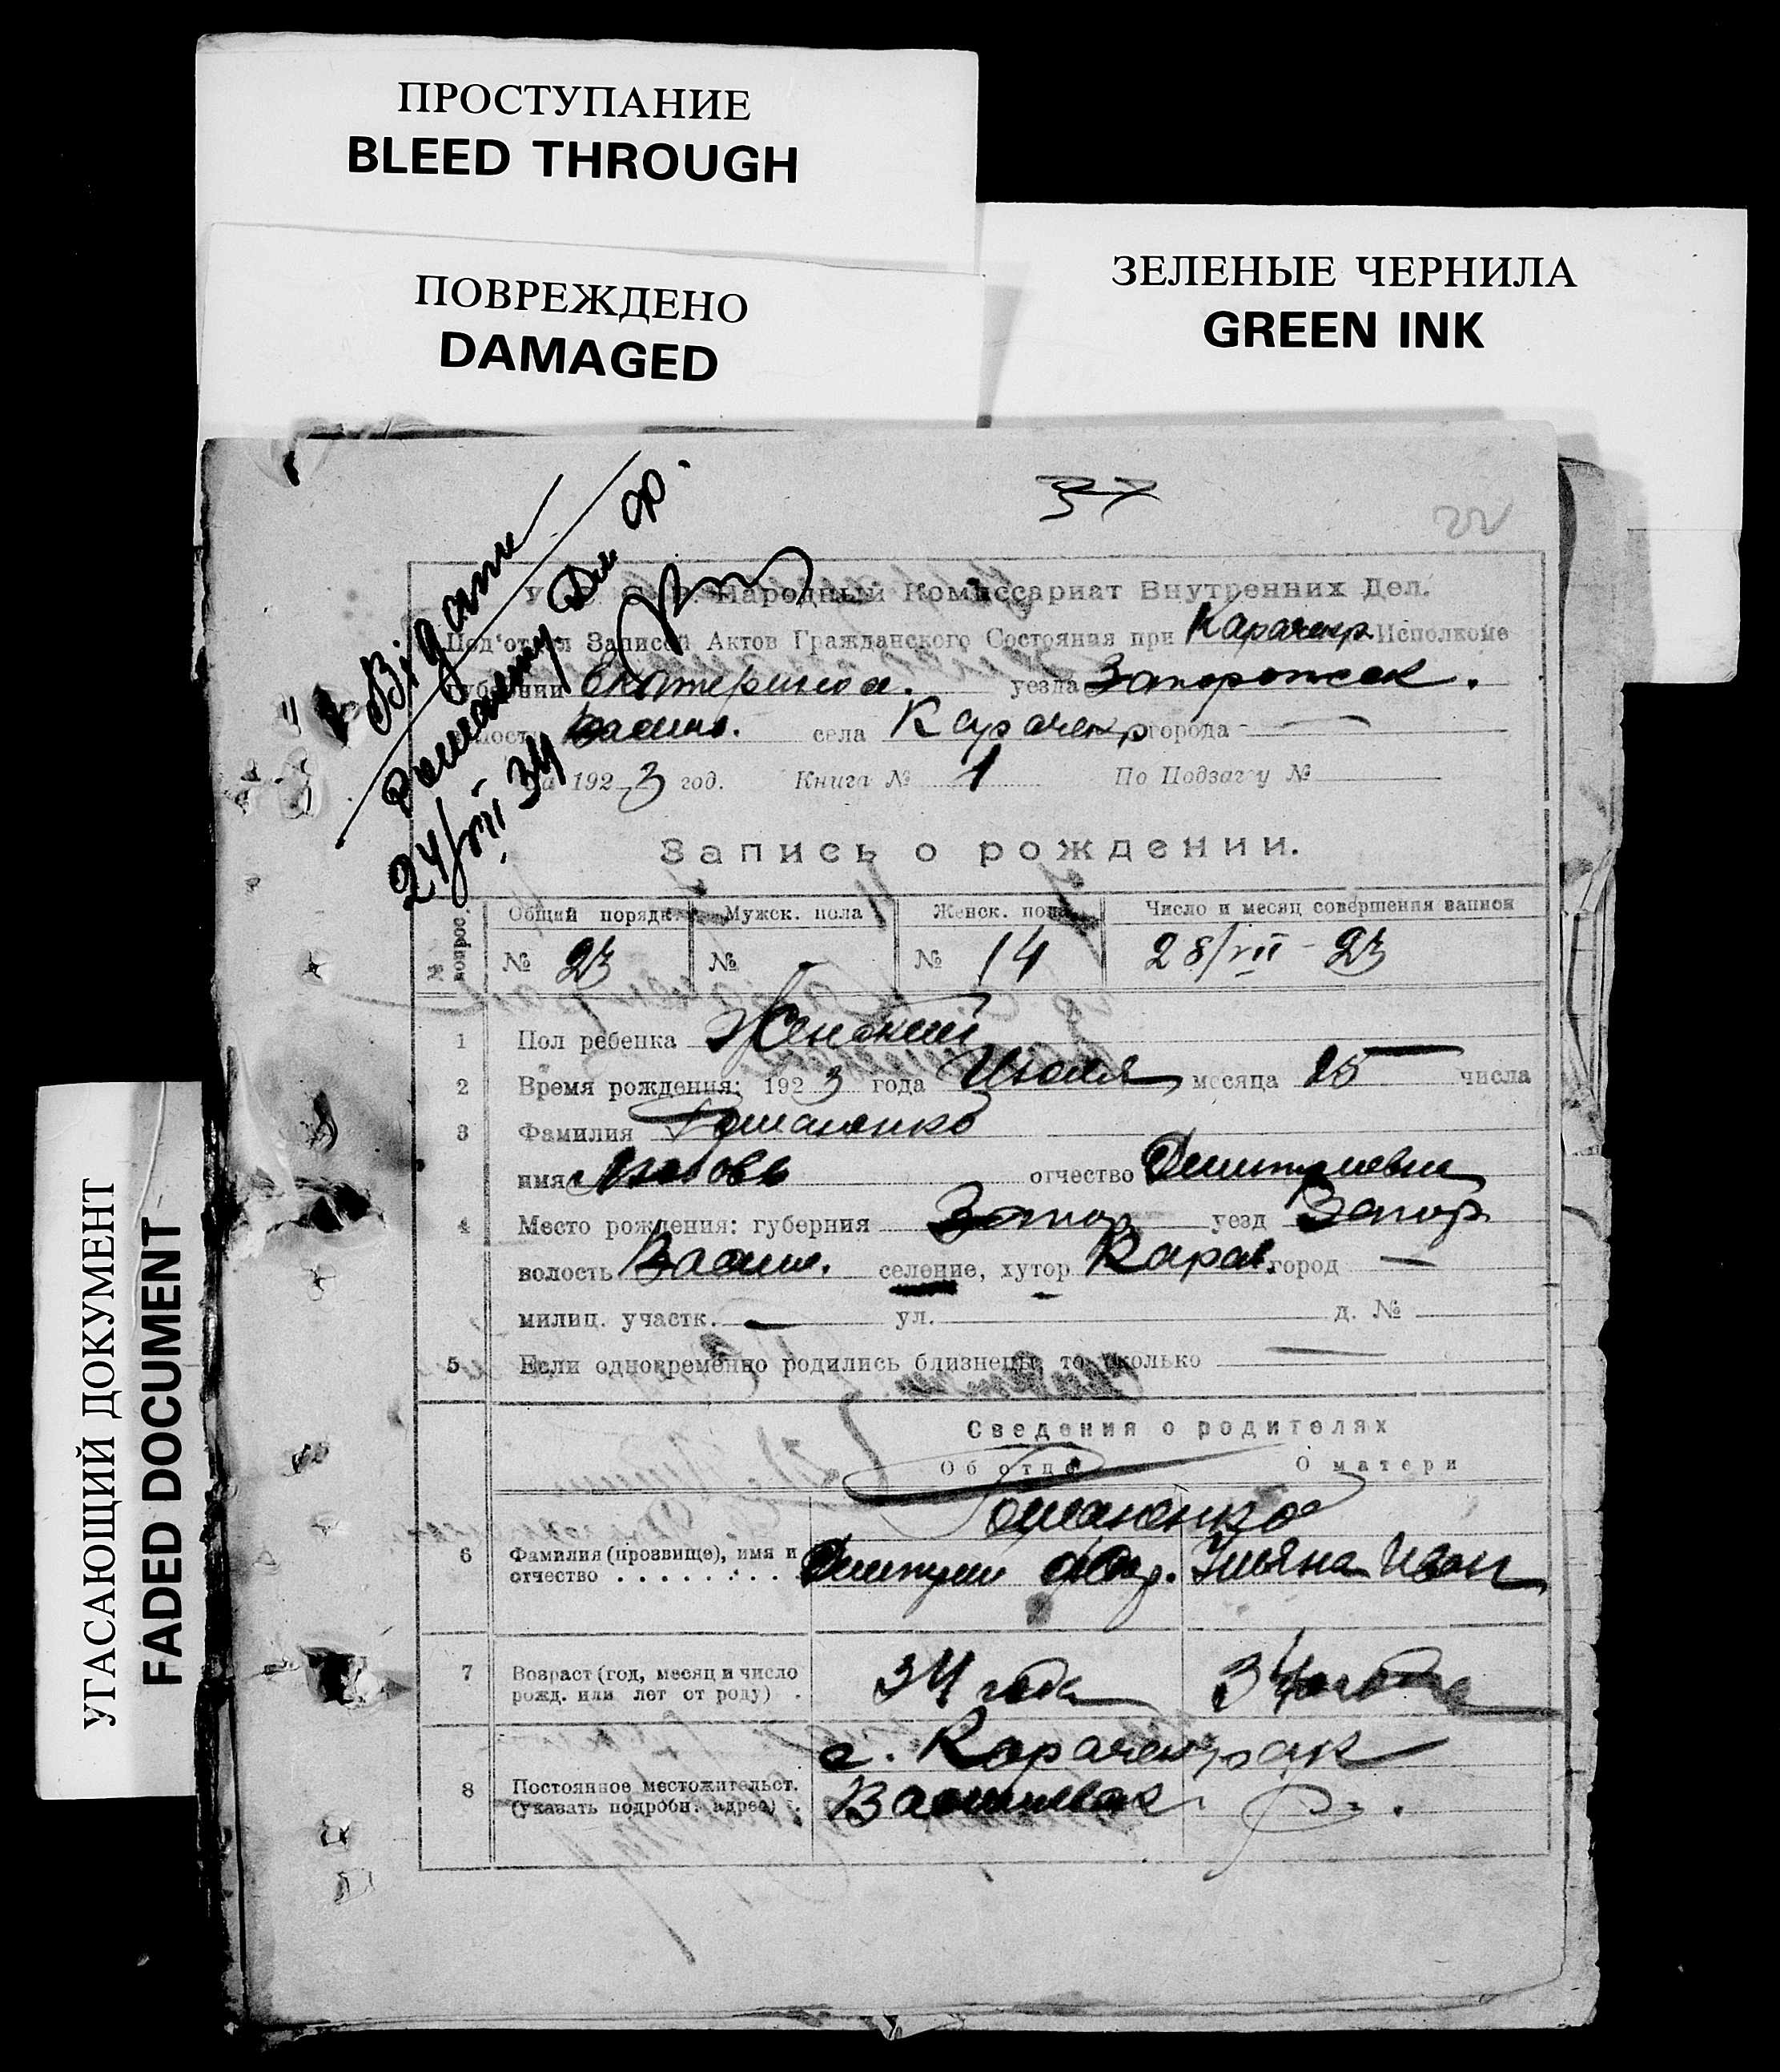 ПРОСТУПАНИЕ
BLEED THROUGH
ПОВРЕЖДЕНО
DAMAGED
ЗЕЛЕНЫЕ ЧЕРНИЛА
GREEN INK
УГАСАЮЩИЙ ДОКУМЕНТ
FADED DOCUMENT
37
22
Видани
24/VII 34
Народный Комиссариат Внутренних Дел.
Под'отдел Записей Актов Гражданского Состояния при Карачекр. Исполкоме
губернии Екатеринос. уезда Запорожск.
Васил. села Карачекр города —
1923 год. Книга № 1 По Подзагу №
Запись о рождении.
№ вопрос. Общий порядк. Мужск. пола Женск. пола Число и месяц совершения записи
№ 23 № - № 14 28/VII - 23
1 Пол ребенка Женский
2 Время рождения: 1923 года Июля месяца 15 числа
3 Фамилия Гомаленко
имя Любовь отчество Дмитриевна
4 Место рождения: губерния Запор уезд Запор
волость Васил. селение, хутор Карач. город —
милиц. участк. — ул. д. №
5 Если одновременно родились близнецы, то сколько —
Сведения о родителях
Об отце О матери
6 Фамилия (прозвище), имя и отчество . . . . . . . .
Дмитрий Фед. Ульяна Иван
7 Возраст (год, месяц и число рожд. или лет от роду) . 34 года 34 года
8 Постоянное местожительст. (указать подробн. адрес) .
с. Карачекрак
Васильевск.